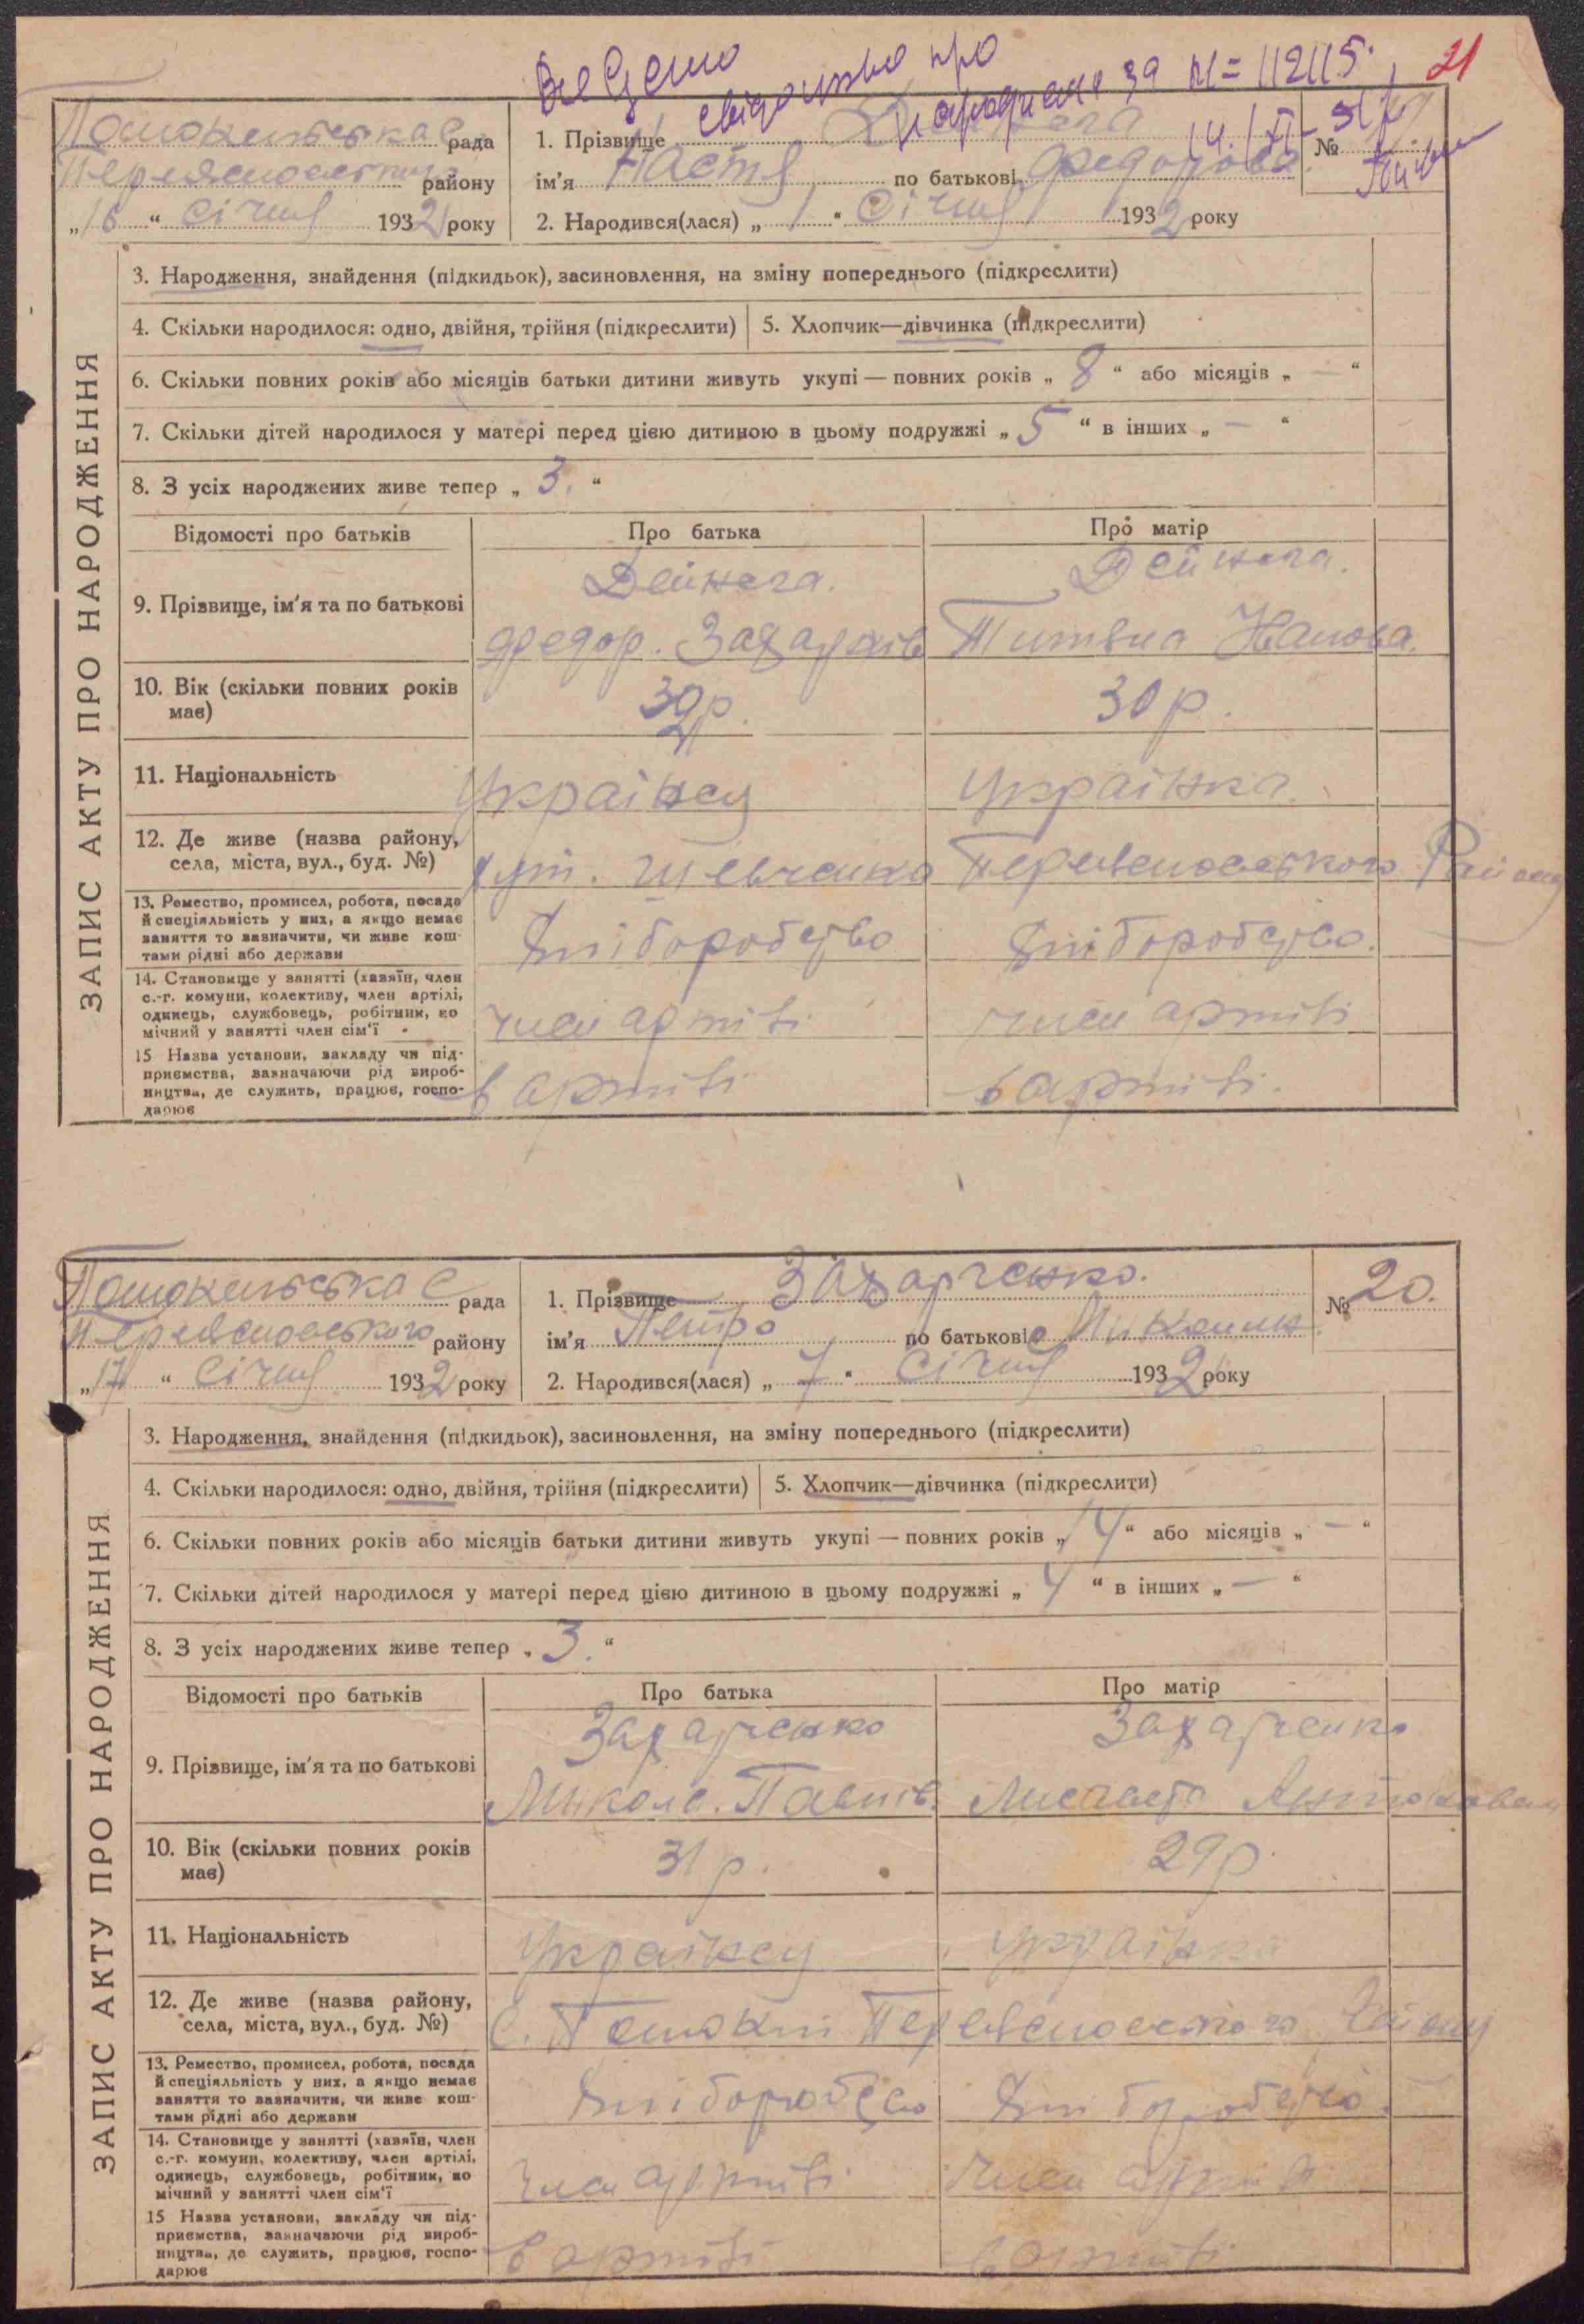 Видано свідоцтво про
народження за № 112115.
21
Потокільська с рада
1. Прізвище
№
району
ім'я Настя по батькові Федорова
„16" січня 1932 року
2. Народився(лася) „1" січня 1932 року
ЗАПИС АКТУ ПРО НАРОДЖЕННЯ
3. Народження, знайдення (підкидьок), засиновлення, на зміну попереднього (підкреслити)
4. Скільки народилося: одно, двійня, трійня (підкреслити)
5. Хлопчик—дівчинка (підкреслити)
6. Скільки повних років або місяців батьки дитини живуть укупі — повних років „ 8 " або місяців „ — "
7. Скільки дітей народилося у матері перед цією дитиною в цьому подружжі „ 5 " в інших „ — "
8. З усіх народжених живе тепер „ 3. "
Відомості про батьків
Про батька
Про матір
9. Прізвище, ім'я та по батькові
Дейнега.
Федор. Захарків
Дейнега.
Титяна
10. Вік (скільки повних років має)
30 р.
11. Національність
Українец
Українка.
12. Де живе (назва району, села, міста, вул., буд. №)
хут. Шевченко
Району
13. Ремество, промисел, робота, посада й спеціяльність у них, а якщо немає заняття то зазначити, чи живе коштами рідні або держави
Хліборобство
Хліборобство.
14. Становище у занятті (хазяїн, член с.-г. комуни, колективу, член артілі, одинець, службовець, робітник, помічний у занятті член сім'ї
член артілі
член артілі
15 Назва установи, закладу чи підприємства, зазначаючи рід виробництва, де служить, працює, господарює
в артілі
в артілі.
Потокільська с рада
1. Прізвище Захарченко.
№ 20.
району
ім'я Петро по батькові Миколик.
„17" січня 1932 року
2. Народився(лася) „7" січня 1932 року
ЗАПИС АКТУ ПРО НАРОДЖЕННЯ
3. Народження, знайдення (підкидьок), засиновлення, на зміну попереднього (підкреслити)
4. Скільки народилося: одно, двійня, трійня (підкреслити)
5. Хлопчик—дівчинка (підкреслити)
6. Скільки повних років або місяців батьки дитини живуть укупі — повних років „ 14 " або місяців „ — "
7. Скільки дітей народилося у матері перед цією дитиною в цьому подружжі „ 4 " в інших „ — "
8. З усіх народжених живе тепер „ 3. "
Відомості про батьків
Про батька
Про матір
9. Прізвище, ім'я та по батькові
Захарченко
Микола. Павлів.
Захарченко
Лисавета
10. Вік (скільки повних років має)
31 р.
29 р
11. Національність
Українец
українка
12. Де живе (назва району, села, міста, вул., буд. №)
с. району
13. Ремество, промисел, робота, посада й спеціяльність у них, а якщо немає заняття то зазначити, чи живе коштами рідні або держави
Хліборобство
Хліборобство.
14. Становище у занятті (хазяїн, член с.-г. комуни, колективу, член артілі, одинець, службовець, робітник, помічний у занятті член сім'ї
член артілі
член артілі
15 Назва установи, закладу чи підприємства, зазначаючи рід виробництва, де служить, працює, господарює
в артілі
в артілі